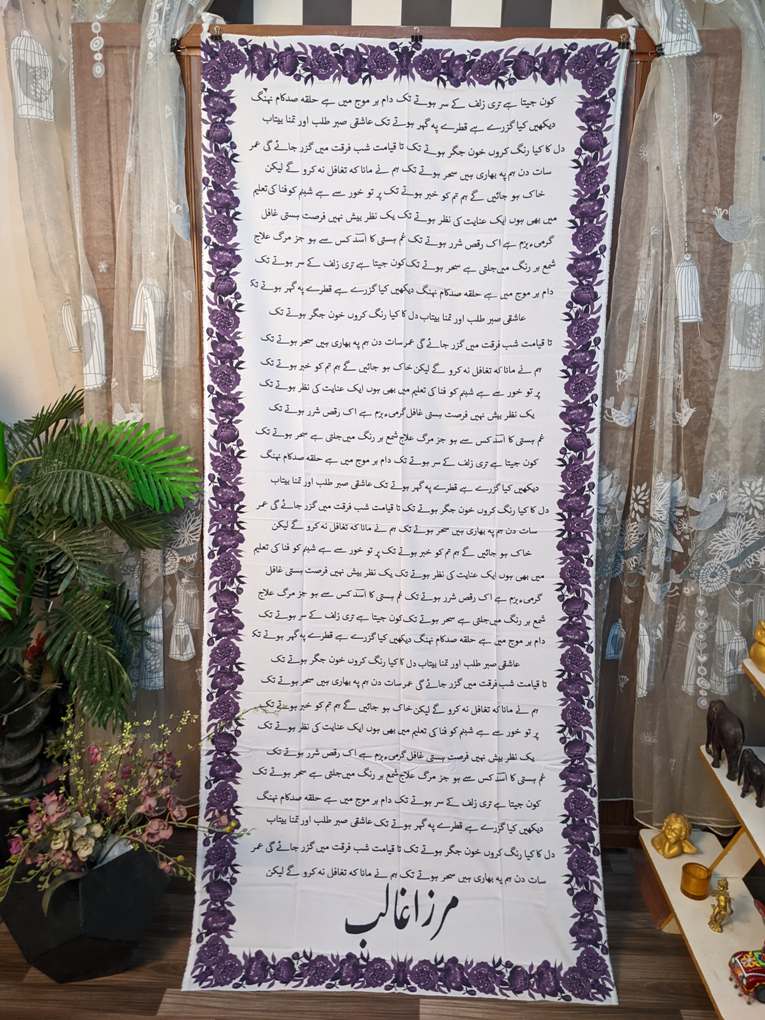 کون جیتا ہے تری زلف کے سر ہوتے تک دام ہر موج میں ہے حلقہ صدکام نہنگ
دیکھیں کیا گزرے ہے قطرے پہ گہر ہوتے تک عاشقی صبر طلب اور تمنا بیتاب
دل کا کیا رنگ کروں خون جگر ہوتے تک تا قیامت شب فرقت میں گزر جائے گی عمر
سات دن ہم پہ بھاری ہیں سحر ہوتے تک ہم نے مانا کہ تغافل نہ کرو گے لیکن
خاک ہو جائیں گے ہم تم کو خبر ہوتے تک پر تو خور سے ہے شبنم کو فنا کی تعلیم
میں بھی ہوں ایک عنایت کی نظر ہوتے تک یک نظر بیش نہیں فرصت ہستی غافل
گرمیء بزم ہے اک رقص شرر ہوتے تک غم ہستی کا اسد کس سے ہو جز مرگ علاج
شمع ہر رنگ میں جلتی ہے سحر ہوتے تک کون جیتا ہے تری زلف کے سر ہوتے تک
دام ہر موج میں ہے حلقہ صدکام نہنگ دیکھیں کیا گزرے ہے قطرے پہ گہر ہوتے تک
عاشقی صبر طلب اور تمنا بیتاب دل کا کیا رنگ کروں خون جگر ہوتے تک
تا قیامت شب فرقت میں گزر جائے گی عمر سات دن ہم پہ بھاری ہیں سحر ہوتے تک
ہم نے مانا کہ تغافل نہ کرو گے لیکن خاک ہو جائیں گے ہم تم کو خبر ہوتے تک
پر تو خور سے ہے شبنم کو فنا کی تعلیم میں بھی ہوں ایک عنایت کی نظر ہوتے تک
یک نظر بیش نہیں فرصت ہستی غافل گرمیء بزم ہے اک رقص شرر ہوتے تک
غم ہستی کا اسد کس سے ہو جز مرگ علاج شمع ہر رنگ میں جلتی ہے سحر ہوتے تک
کون جیتا ہے تری زلف کے سر ہوتے تک دام ہر موج میں ہے حلقہ صدکام نہنگ
دیکھیں کیا گزرے ہے قطرے پہ گہر ہوتے تک عاشقی صبر طلب اور تمنا بیتاب
دل کا کیا رنگ کروں خون جگر ہوتے تک تا قیامت شب فرقت میں گزر جائے گی عمر
سات دن ہم پہ بھاری ہیں سحر ہوتے تک ہم نے مانا کہ تغافل نہ کرو گے لیکن
خاک ہو جائیں گے ہم تم کو خبر ہوتے تک پر تو خور سے ہے شبنم کو فنا کی تعلیم
میں بھی ہوں ایک عنایت کی نظر ہوتے تک یک نظر بیش نہیں فرصت ہستی غافل
گرمیء بزم ہے اک رقص شرر ہوتے تک غم ہستی کا اسد کس سے ہو جز مرگ علاج
شمع ہر رنگ میں جلتی ہے سحر ہوتے تک کون جیتا ہے تری زلف کے سر ہوتے تک
دام ہر موج میں ہے حلقہ صدکام نہنگ دیکھیں کیا گزرے ہے قطرے پہ گہر ہوتے تک
عاشقی صبر طلب اور تمنا بیتاب دل کا کیا رنگ کروں خون جگر ہوتے تک
تا قیامت شب فرقت میں گزر جائے گی عمر سات دن ہم پہ بھاری ہیں سحر ہوتے تک
ہم نے مانا کہ تغافل نہ کرو گے لیکن خاک ہو جائیں گے ہم تم کو خبر ہوتے تک
پر تو خور سے ہے شبنم کو فنا کی تعلیم میں بھی ہوں ایک عنایت کی نظر ہوتے تک
یک نظر بیش نہیں فرصت ہستی غافل گرمیء بزم ہے اک رقص شرر ہوتے تک
غم ہستی کا اسد کس سے ہو جز مرگ علاج شمع ہر رنگ میں جلتی ہے سحر ہوتے تک
کون جیتا ہے تری زلف کے سر ہوتے تک دام ہر موج میں ہے حلقہ صدکام نہنگ
دیکھیں کیا گزرے ہے قطرے پہ گہر ہوتے تک عاشقی صبر طلب اور تمنا بیتاب
دل کا کیا رنگ کروں خون جگر ہوتے تک تا قیامت شب فرقت میں گزر جائے گی عمر
سات دن ہم پہ بھاری ہیں سحر ہوتے تک ہم نے مانا کہ تغافل نہ کرو گے لیکن
مرزا غالب